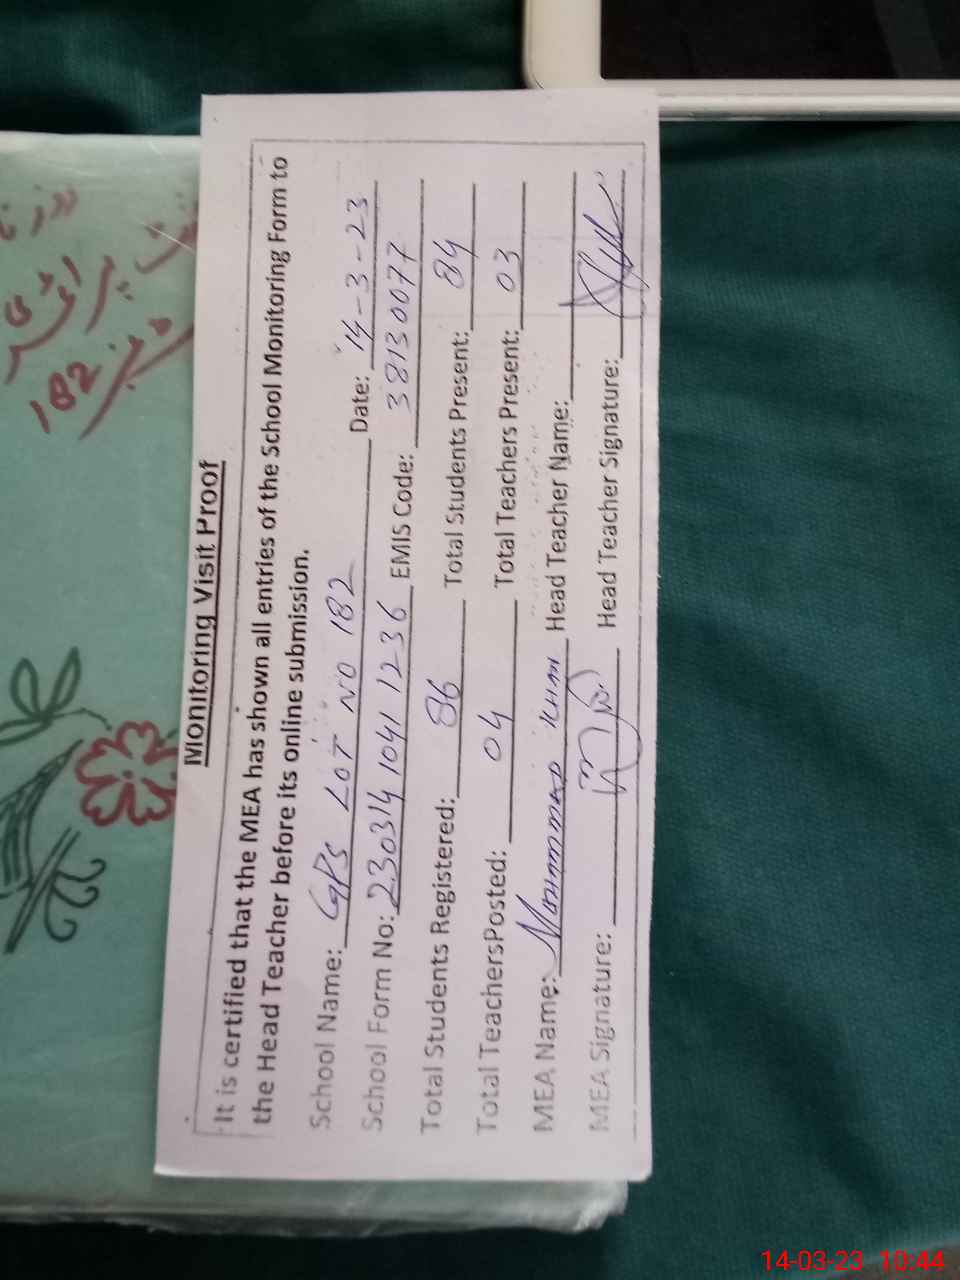 Monitoring Visit Proof
It is certified that the MEA has shown all entries of the School Monitoring Form to
the Head Teacher before its online submission.
School Name: GPS LOT NO 182 Date: 14-3-23
School Form No: 2303141041 1236 EMIS Code: 38130077
Total Students Registered: 86 Total Students Present: 84
Total TeachersPosted: 04 Total Teachers Present: 03
MEA Name: Mohammad Head Teacher Name:
MEA Signature: Head Teacher Signature:
پرائمری
182
14-03-23 10:44